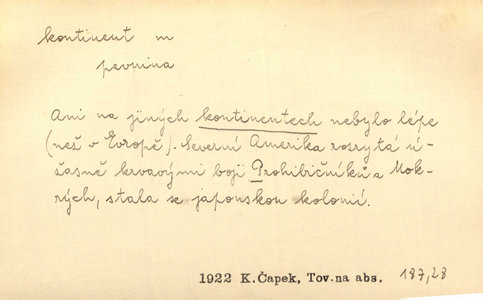 kontinent m
pevnina
Ani na jiných kontinentech nebylo lépe
(než v Evropě). Severní Amerika rozrytá ú-
žasně krvavými boji Prohibičníků a Mok-
rých, stala se japonskou kolonií.
1922 K.Čapek, Tov.na abs. 187,28